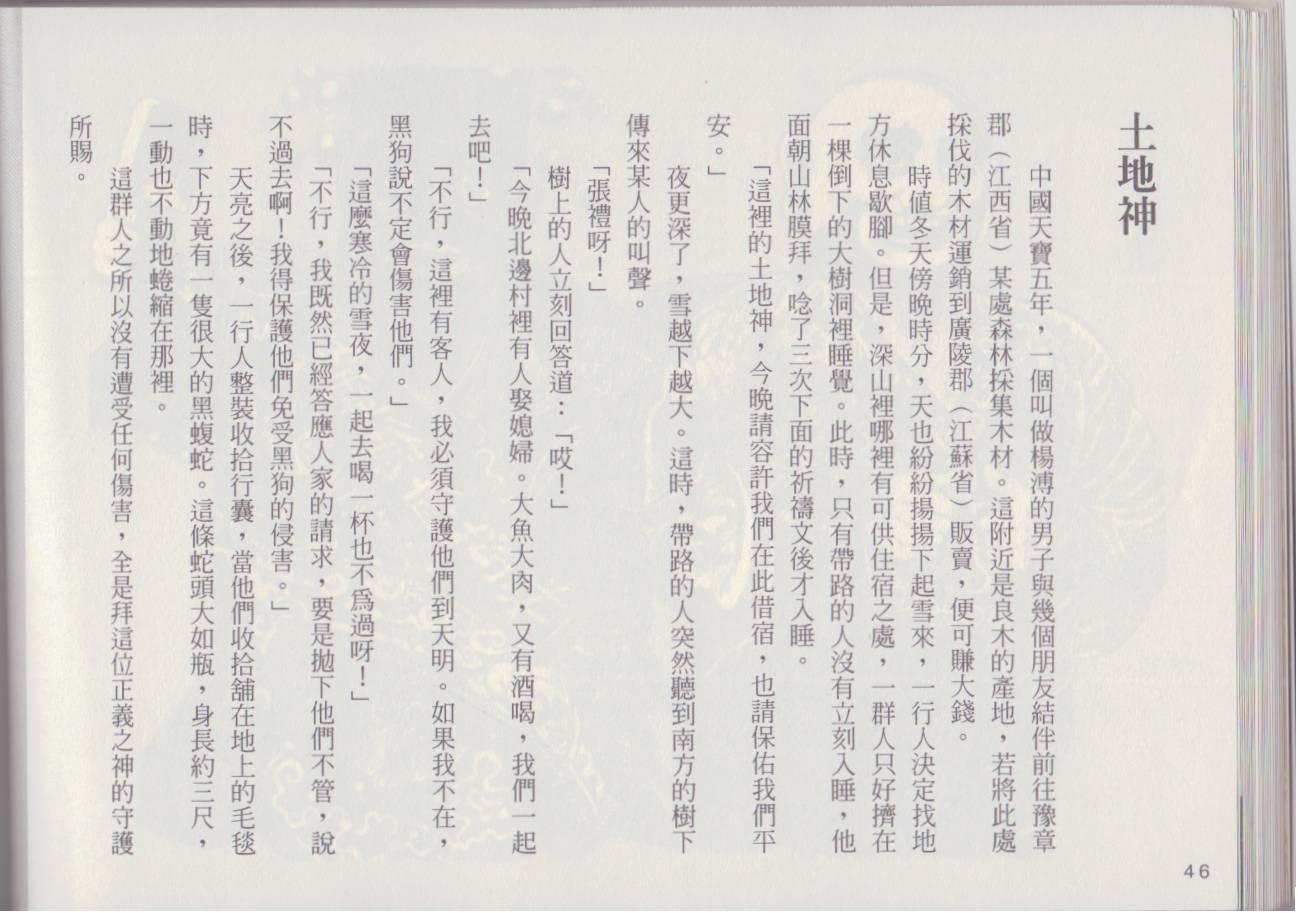 土地神
中國天寶五年，一個叫做楊溥的男子與幾個朋友結伴前往豫章
郡（江西省）某處森林採集木材。這附近是良木的產地，若將此處
採伐的木材運銷到廣陵郡（江蘇省）販賣，便可賺大錢。
時値冬天傍晚時分，天也紛紛揚揚下起雪來，一行人決定找地
方休息歇腳。但是，深山裡哪裡有可供住宿之處，一群人只好擠在
一棵倒下的大樹洞裡睡覺。此時，只有帶路的人沒有立刻入睡，他
面朝山林膜拜，唸了三次下面的祈禱文後才入睡。
「這裡的土地神，今晚請容許我們在此借宿，也請保佑我們平
安。」
夜更深了，雪越下越大。這時，帶路的人突然聽到南方的樹下
傳來某人的叫聲。
「張禮呀！」
樹上的人立刻回答道：「哎！」
「今晚北邊村裡有人娶媳婦。大魚大肉，又有酒喝，我們一起
去吧！」
「不行，這裡有客人，我必須守護他們到天明。如果我不在，
黑狗說不定會傷害他們。」
「這麼寒冷的雪夜，一起去喝一杯也不爲過呀！」
「不行，我既然已經答應人家的請求，要是拋下他們不管，說
不過去啊！我得保護他們免受黑狗的侵害。」
天亮之後，一行人整裝收拾行囊，當他們收拾舖在地上的毛毯
時，下方竟有一隻很大的黑蝮蛇。這條蛇頭大如瓶，身長約三尺，
一動也不動地蜷縮在那裡。
這群人之所以沒有遭受任何傷害，全是拜這位正義之神的守護
所賜。
46